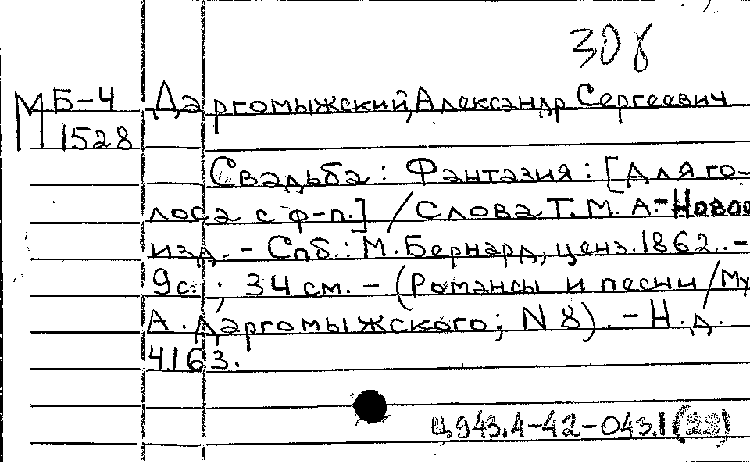 308
М Б-4 Даргомыжский, Александр Сергеевич
1528
Свадьба: Фантазия: [Для го-
лоса с ф-п.] / Слова Т. М. А. - Новое
изд. - Спб.: М. Бернард, ценз. 1862. -
9с.; 34 см. - (Романсы и песни / Му
А. Даргомыжского; N 8). - Н. д.
4163.
Ц943.4-42-043.1(28)